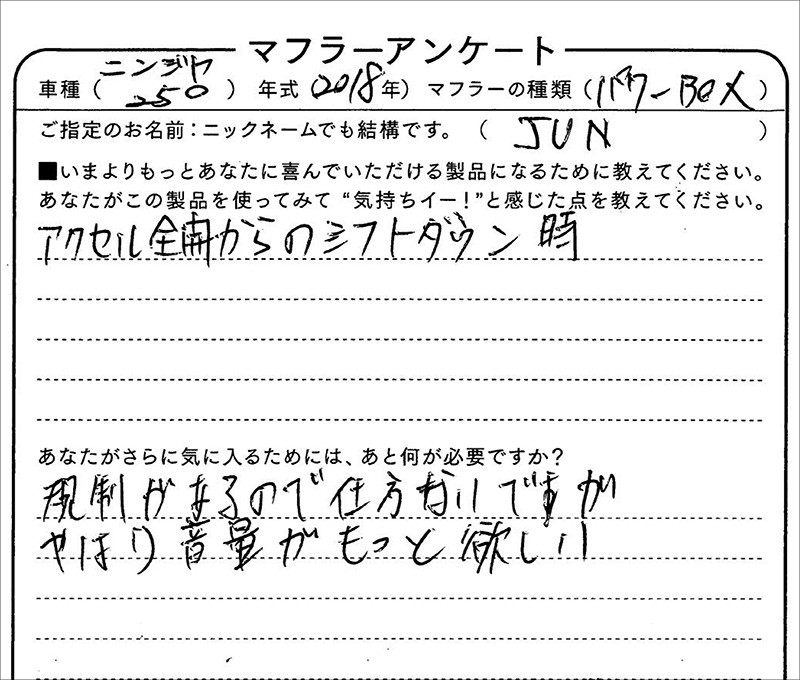 マフラーアンケート
車種（ニンジャ250） 年式（2018年） マフラーの種類（パワーBOX）
ご指定のお名前：ニックネームでも結構です。（ JUN ）
■いまよりもっとあなたに喜んでいただける製品になるために教えてください。
あなたがこの製品を使ってみて“気持ちイー！”と感じた点を教えてください。
アクセル全開からのシフトダウン時
あなたがさらに気に入るためには、あと何が必要ですか？
規制があるので仕方ないですが
やはり音量がもっと欲しい